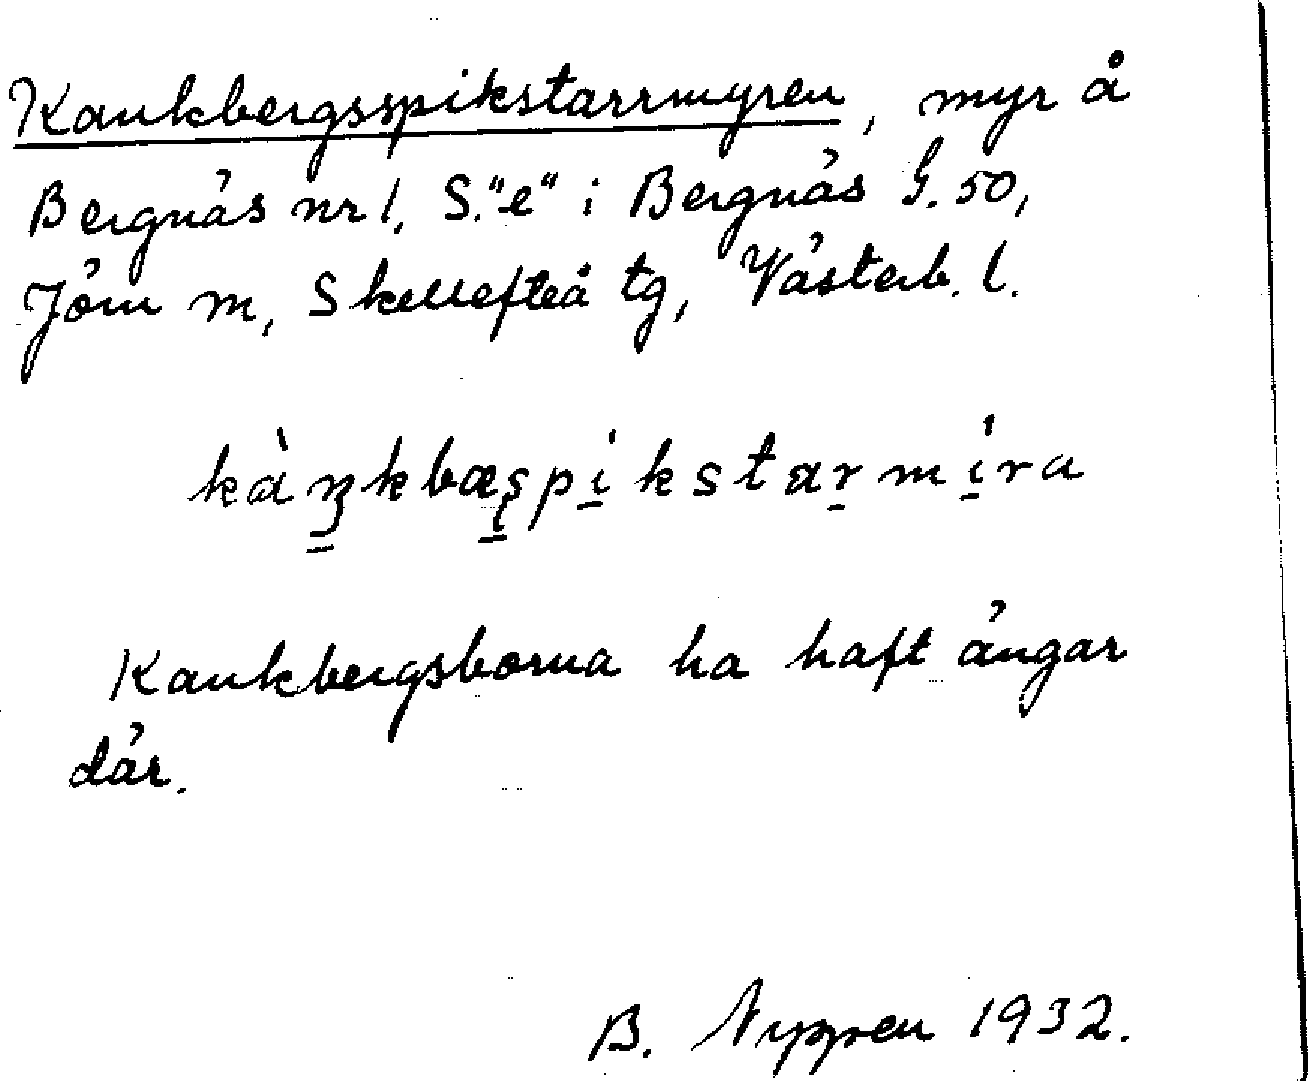 Kankbergsspikstarrmyren, myr å
Bergnäs nr 1, S. "e" i Bergnäs G. 50,
Jörn sn, Skellefteå tg, Västerb. l.
kàŋkbæʂpi̱kstar̠mi̱ra
Kankbergsborna ha haft ängar
där.
B. Nygren 1932.